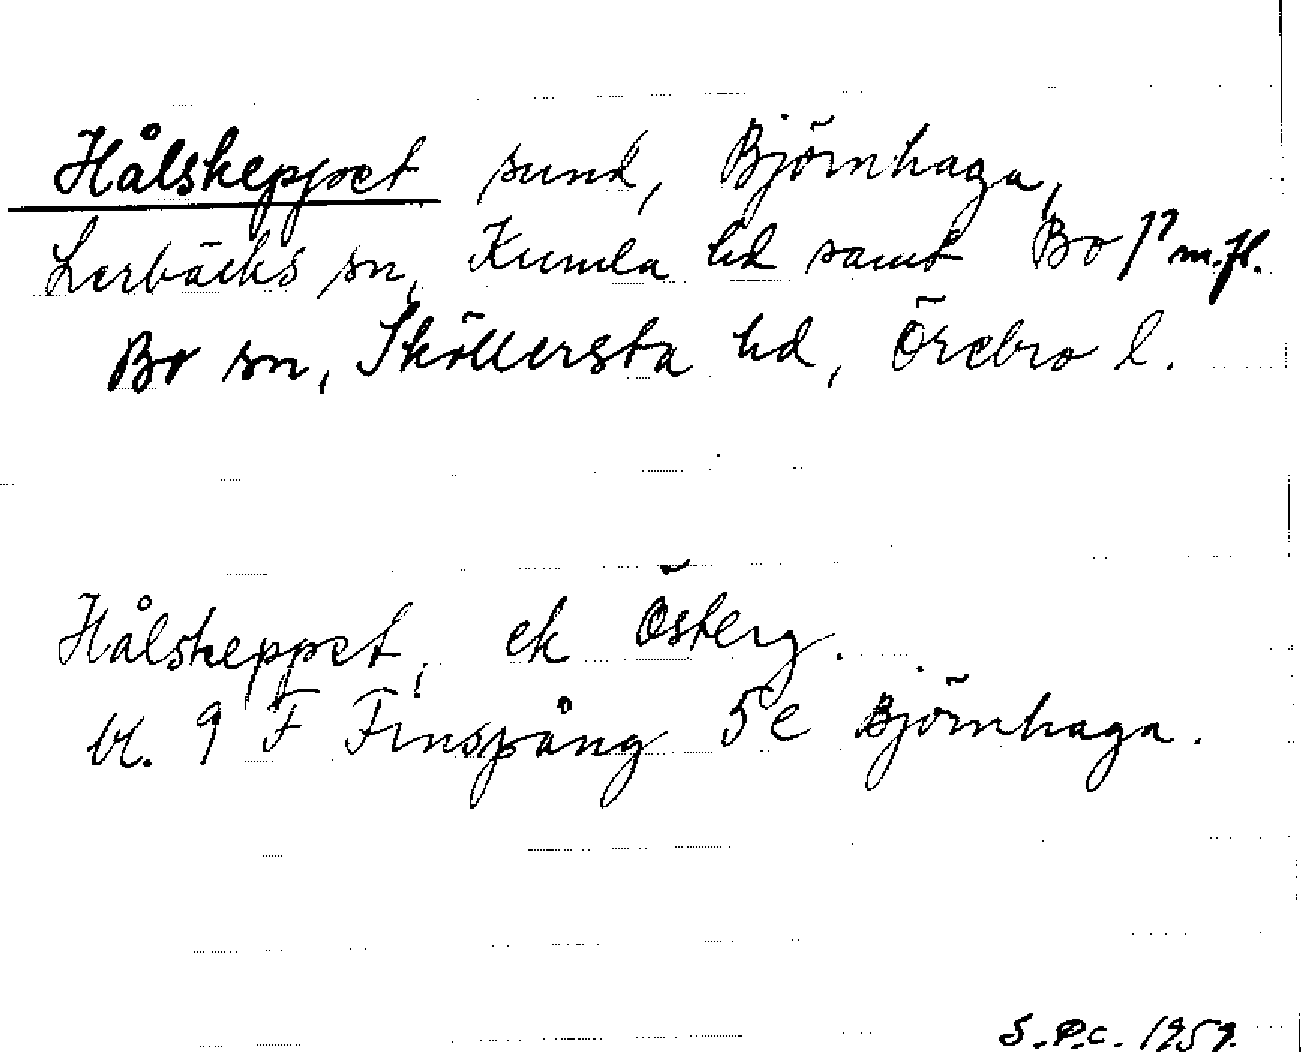 Hålskeppet sund, Björnhaga,
Lerbäcks sn, Kumla hd samt Bo 1² m.fl.
Bo sn, Sköllersta hd, Örebro l.
Hålskeppet, ek Österg.
bl. 9 F Finspång 5e Björnhaga.
S.P.C. 1959.